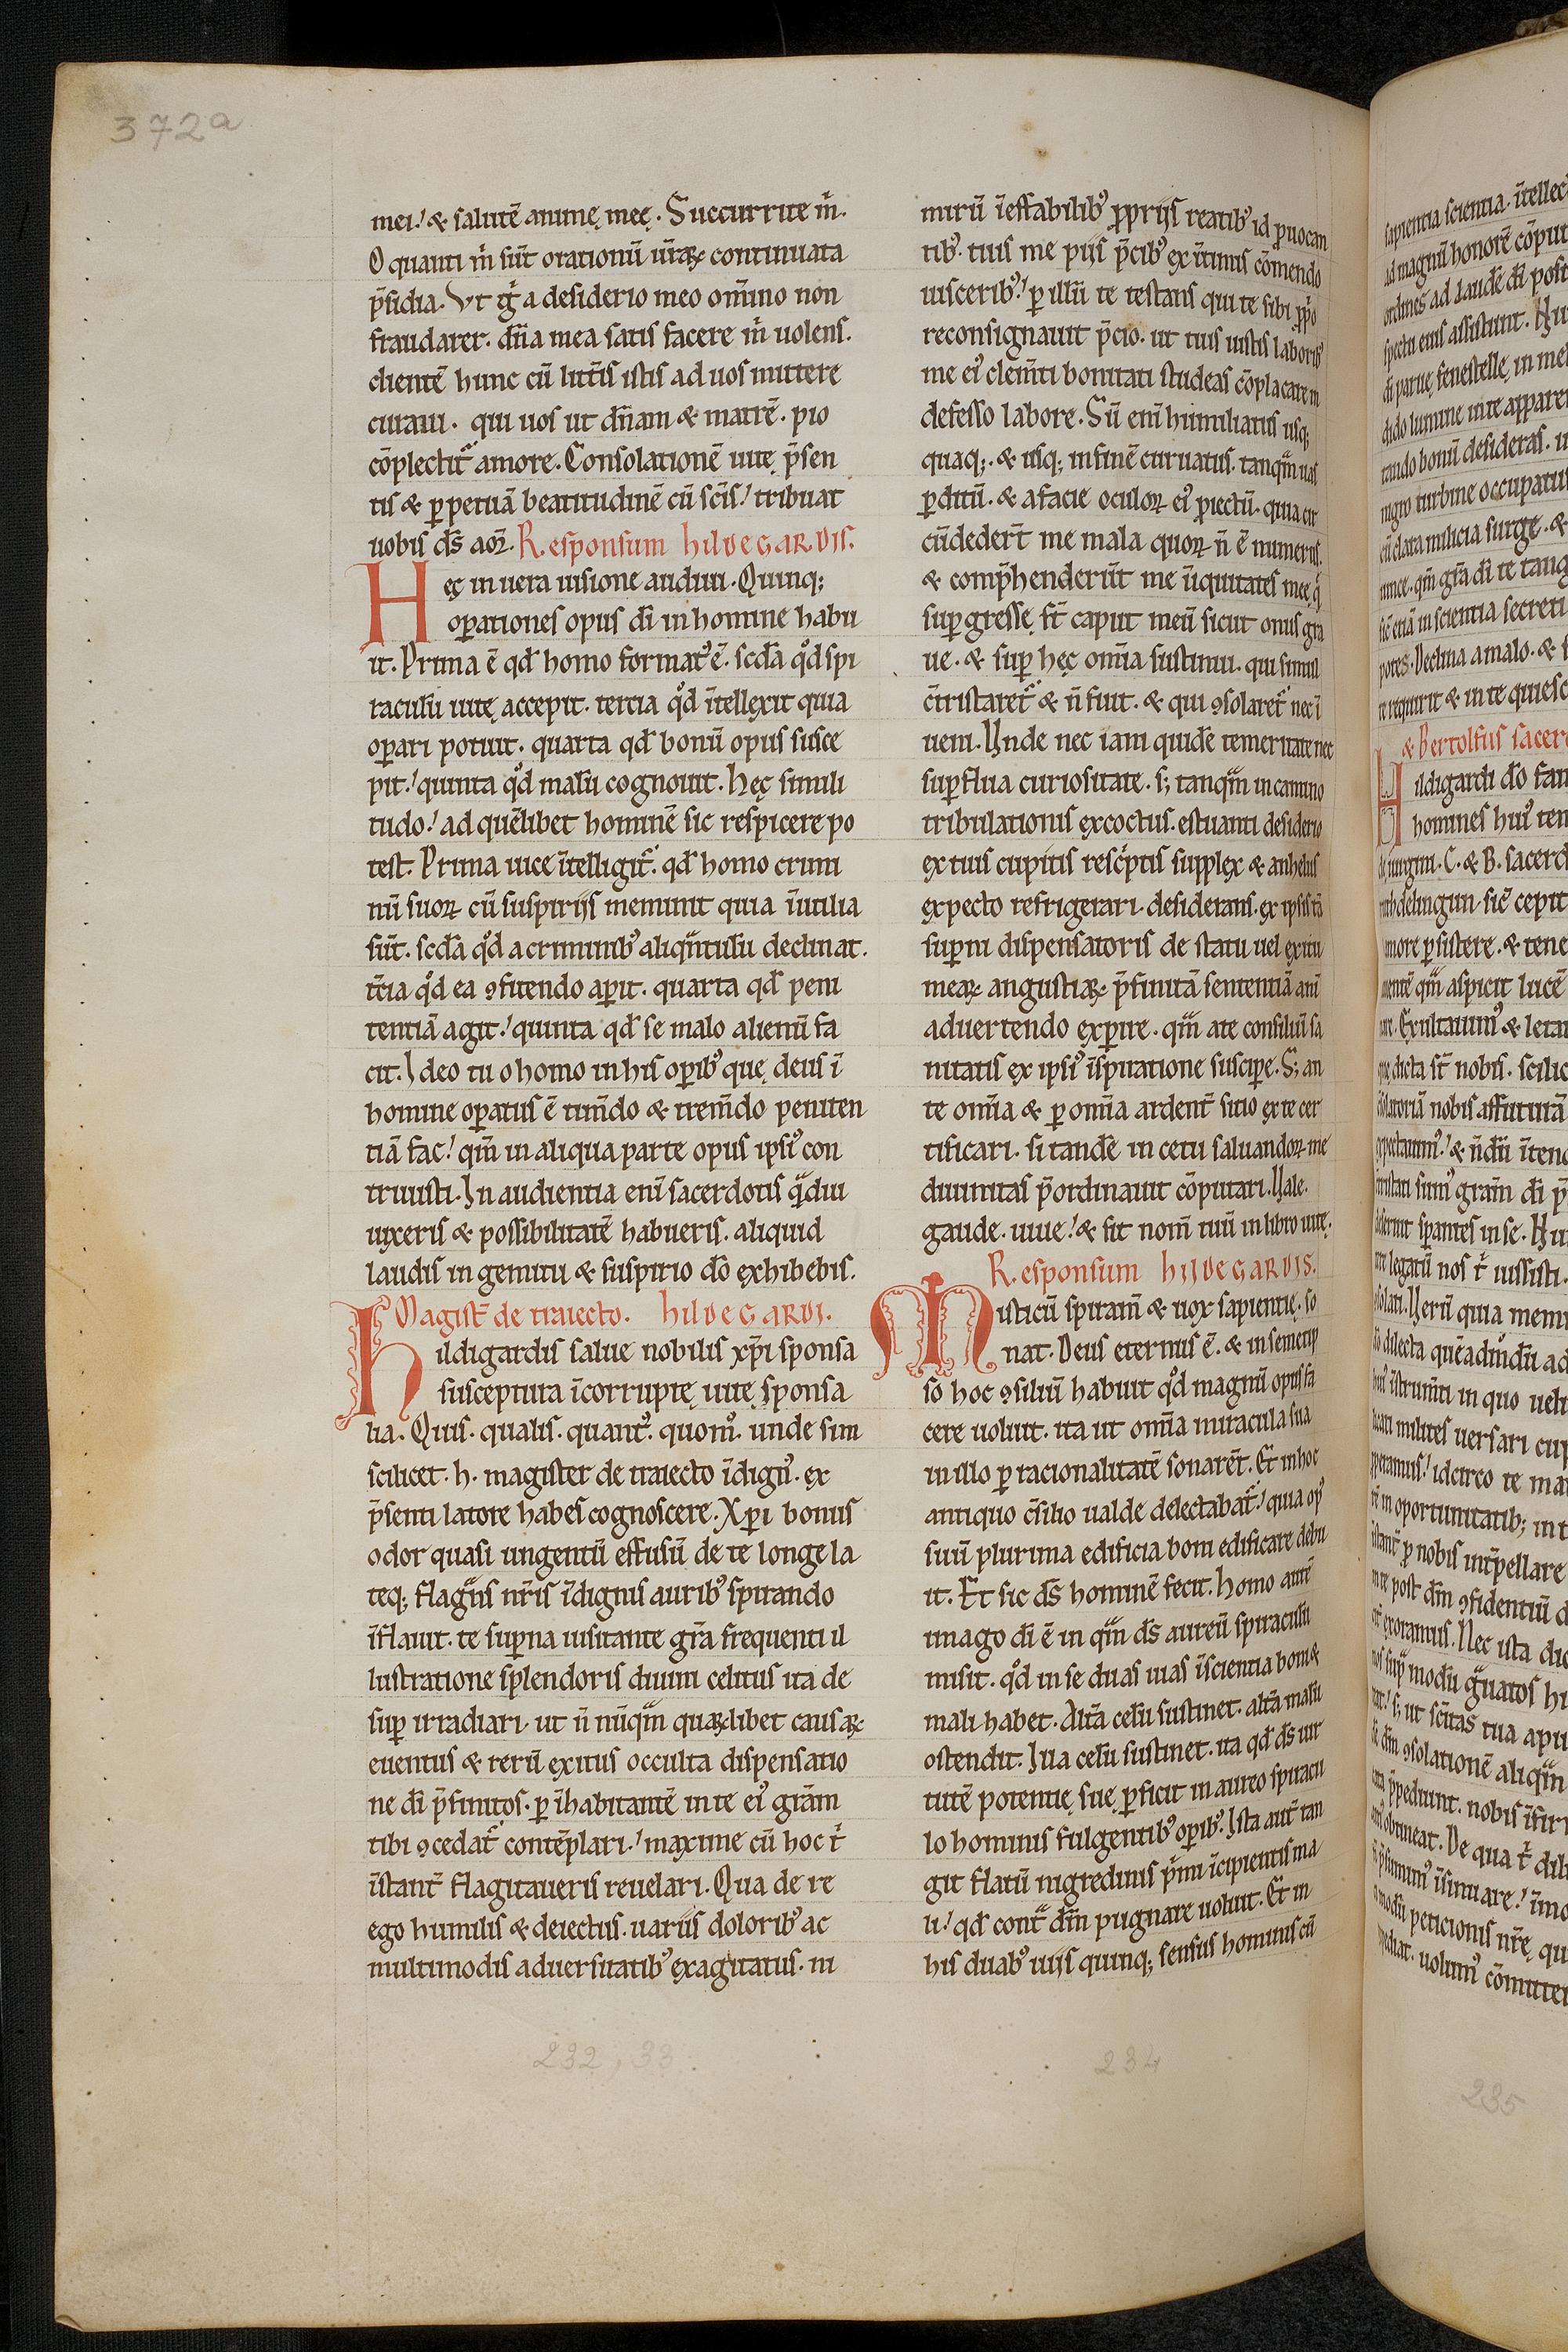 372a
mei! & salutē animę meę. Succurrite m̄.
O quanti m̄ sūt orationū ūraꝝ continuata
p̄sidia. Vt ḡ a desiderio meo om̄ino non
fraudarer. dn̄a mea satis facere m̄ uolens.
clientē hunc cū litt̄is istis ad uos mittere
curaui. qui uos ut dn̄am & matrē. pio
cōplectit᷑ amore. Consolationē uitę p̄sen
tis & ꝑpetuā beatitudinē cū sc̄is! tribuat
uobis ds̄ aoꝝ. Responsum hildegardis.
Hęc in uera uisione audiui. Quinq;
oꝑationes opus dī in homine habu
it. Prima ē qd̄ homo format᷒ ē. scd̄a qͦd spi
raculū uitę accepit. tercia qͦd ītellexit quia
oꝑari potuit. quarta qd̄ bonū opus susce
pit! quinta qͦd malū cognouit. Hęc simili
tudo! ad quēlibet hominē sic respicere po
test. Prima uice ītelligit᷑. qd̄ homo crimi
nū suoꝝ cū suspirijs meminit quia īutilia
sūt. scd̄a qͦd a criminib᷒ aliqᷓntulū declinat.
t̄cia qͦd ea ꝯfitendo aꝑit. quarta qd̄ peni
tentiā agit! quinta qd̄ se malo alienū fa
cit. Ideo tu o homo in his oꝑib᷒ quę deus ī
homine oꝑatus ē tim̄do & trem̄do peniten
tiā fac! qm̄ in aliqua parte opus ipsi᷒ con
truisti. In audientia enī sacerdotis qᷓdiu
uixeris & possibilitatē habueris. aliquid
laudis in gemitu & suspirio dō exhibebis.
Magist̄ de traiecto. hildegardi.
Hildigardis salue nobilis xp̄i sponsa
susceptura īcorruptę uitę sponsa
lia. Quis. qualis. quant᷒. quom᷒. unde sim
scilicet. h. magister de traiecto īdign᷒. ex
p̄senti latore habes cognoscere. Xpi bonus
odor quasi ungentū effusū de te longe la
teq; flagᷓns nr̄is īdignis aurib᷒ spirando
īflauit. te suꝑna uisitante gr̄a frequenti il
lustratione splendoris diuini celitus ita de
suꝑ irradiari. ut n̄ nūqᷓm quaꝝlibet causaꝝ
euentus & rerū exitus occulta dispensatio
ne dī p̄finitos. ꝑ īhabitantē in te ei᷒ grām
tibi ꝯcedat᷑ contēplari! maxime cū hoc t̄
īstant̄ flagitaueris reuelari. Qua de re
ego humilis & deiectus. uariis dolorib᷒ ac
multimodis aduersitatib᷒ exagitatus. in
mirū īeffabilib᷒ ꝓprijs reatib᷒ id ꝓuocan
tib᷒. tuis me pijs p̄cib᷒ ex ītimis cōmendo
uiscerib᷒! ꝑ illū te testans qui te sibi ꝓpo
reconsignauit p̄cio. ut tuis iustis laborib᷒
me ei᷒ clem̄ti bonitati studeas cōplacare in
defesso labore. Sū enī humiliatus usq;
quaq;. & usq; in finē curuatus. tanqᷓm uas
ꝑditū. & a facie oculoꝝ ei᷒ ꝓiectū. quia cir
cūdeder̄t me mala quoꝝ n̄ ē numerus.
& comp̄henderūt me īiquitates meę. q̄
suꝑgressę s̄t caput meū sicut onus gra
ue. & suꝑ hęc om̄ia sustinui. qui simul
c̄tristaret᷑ & n̄ fuit. & qui ꝯsolaret᷑ nec ī
ueni. Unde nec iam quidē temeritate nec
suꝑflua curiositate. s; tanqᷓm in camino
tribulationis excoctus. estuanti desiderio
ex tuis cupitis resc̄ptis supplex & anhelus
expecto refrigerari. desiderans. ex ipsis tā
suꝑni dispensatoris de statu uel exitu
meaꝝ angustiaꝝ p̄finitā sententiā ani
aduertendo exꝑire. qm̄ a te consiliū sa
nitatis ex ipsi᷒ īspiratione suscipe. S; an
te om̄ia & ꝑ om̄ia ardent̄ sitio ex te cer
tificari. si tandē in cetu saluandoꝝ me
diuinitas p̄ordinauit cōputari. Uale.
gaude. uiue! & sit nom̄ tuū in libro uitę.
Responsum hildegardis.
Misticū spiram̄ & uox sapientię. so
nat. Deus eternus ē. & in semetip
so hoc ꝯsiliū habuit qͦd magnū opus fa
cere uoluit. ita ut om̄ia miracula sua
in illo ꝑ racionalitatē sonarēt. Et in hoc
antiquo c̄silio ualde delectabat᷑! quia op᷒
suū plurima edificia boni edificare debu
it. Et sic ds̄ hominē fecit. Homo autē
imago dī ē in qᷓm ds̄ aureū spiraculū
misit. qͦd in se duas uias īscientia boni &
mali habet. Alt̄a celū sustinet. alt̄a malū
ostendit. Illa celū sustinet. ita qd̄ ds̄ uir
tutē potentię suę ꝑficit in aureo spiracu
lo hominis fulgentib᷒ oꝑib᷒. Ista aut̄ tan
git flatū nigredinis p̄mi īcipientis ma
li! qd̄ cont̄ dm̄ pugnare uoluit. Et in
his duab᷒ uijs quinq; sensus hominis cū
232, 33.
234
sapientia scientia. ītellec
ad magnū honorē cōput
ordines ad laudē dī post
spectu eius assistunt. Hu
dī paruę fenestelle, in me
dido lumine in te apparen
tando bonū desideras. u
nigro turbine occupatus
cū clara milicia surge. &
uince. qm̄ gr̄a dī te tanq
sic̄ etiā in scientia secreti
pores. Declina a malo. & f
te requirit & in te quiesc
& Bertolfus sacer
Hildigardi dō fam
homines hui᷒ tem
C. & B. sacerd
sic̄ cepit
more ꝑsistere. & tene
mentē qᷓm aspicit lucē
Exultauim᷒ & leta
dicta st̄ nobis. scilic
nobis affuturā
235